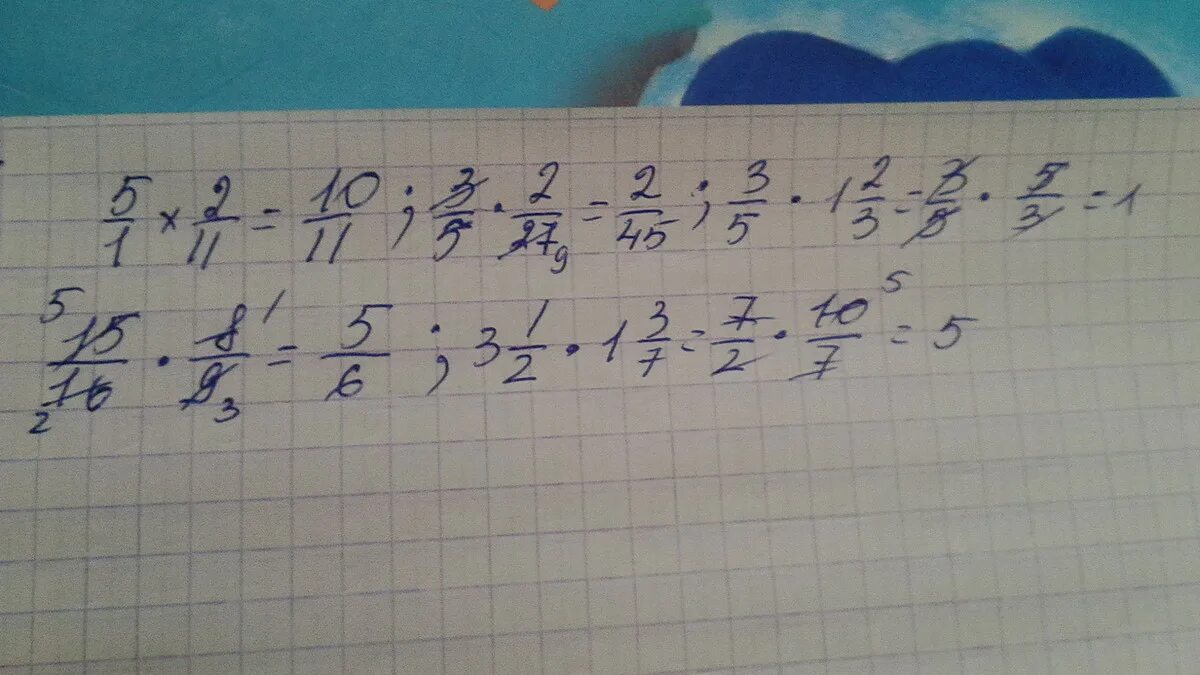 5/1 × 2/11 = 10/11 ; 3/5 · 2/27 9 = 2/45 ; 3/5 · 1 2/3 = 3/5 · 5/3 = 1
5 15/16 2 · 8/9 1 3 = 5/6 ; 3 1/2 · 1 3/7 = 7/2 · 10/7 5 = 5